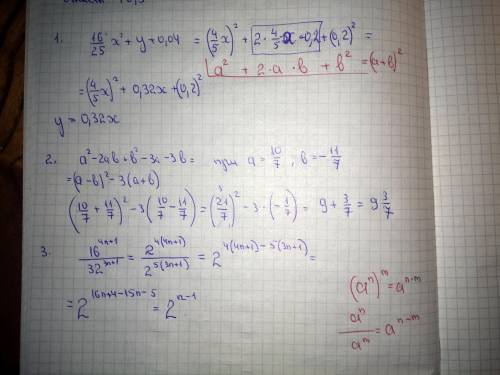 1. 16/25 x² + y + 0,04 = (4/5 x)² + 2·4/5 x·0,2 + (0,2)² =
a² + 2·a·b + b² = (a+b)²
= (4/5 x)² + 0,32x + (0,2)²
y = 0,32x
2. a² - 2ab + b² - 3a - 3b = при a = 10/7, b = -11/7
= (a-b)² - 3(a+b)
(10/7 + 11/7)² - 3(10/7 - 11/7) = (21/7)² - 3·(-1/7) = 9 + 3/7 = 9 3/7
3. 16^(4n+1) / 32^(3n+1) = 2^(4(4n+1)) / 2^(5(3n+1)) = 2^(4(4n+1) - 5(3n+1)) =
= 2^(16n+4-15n-5) = 2^(n-1)
(aⁿ)^m = a^(n·m)
aⁿ / a^m = a^(n-m)